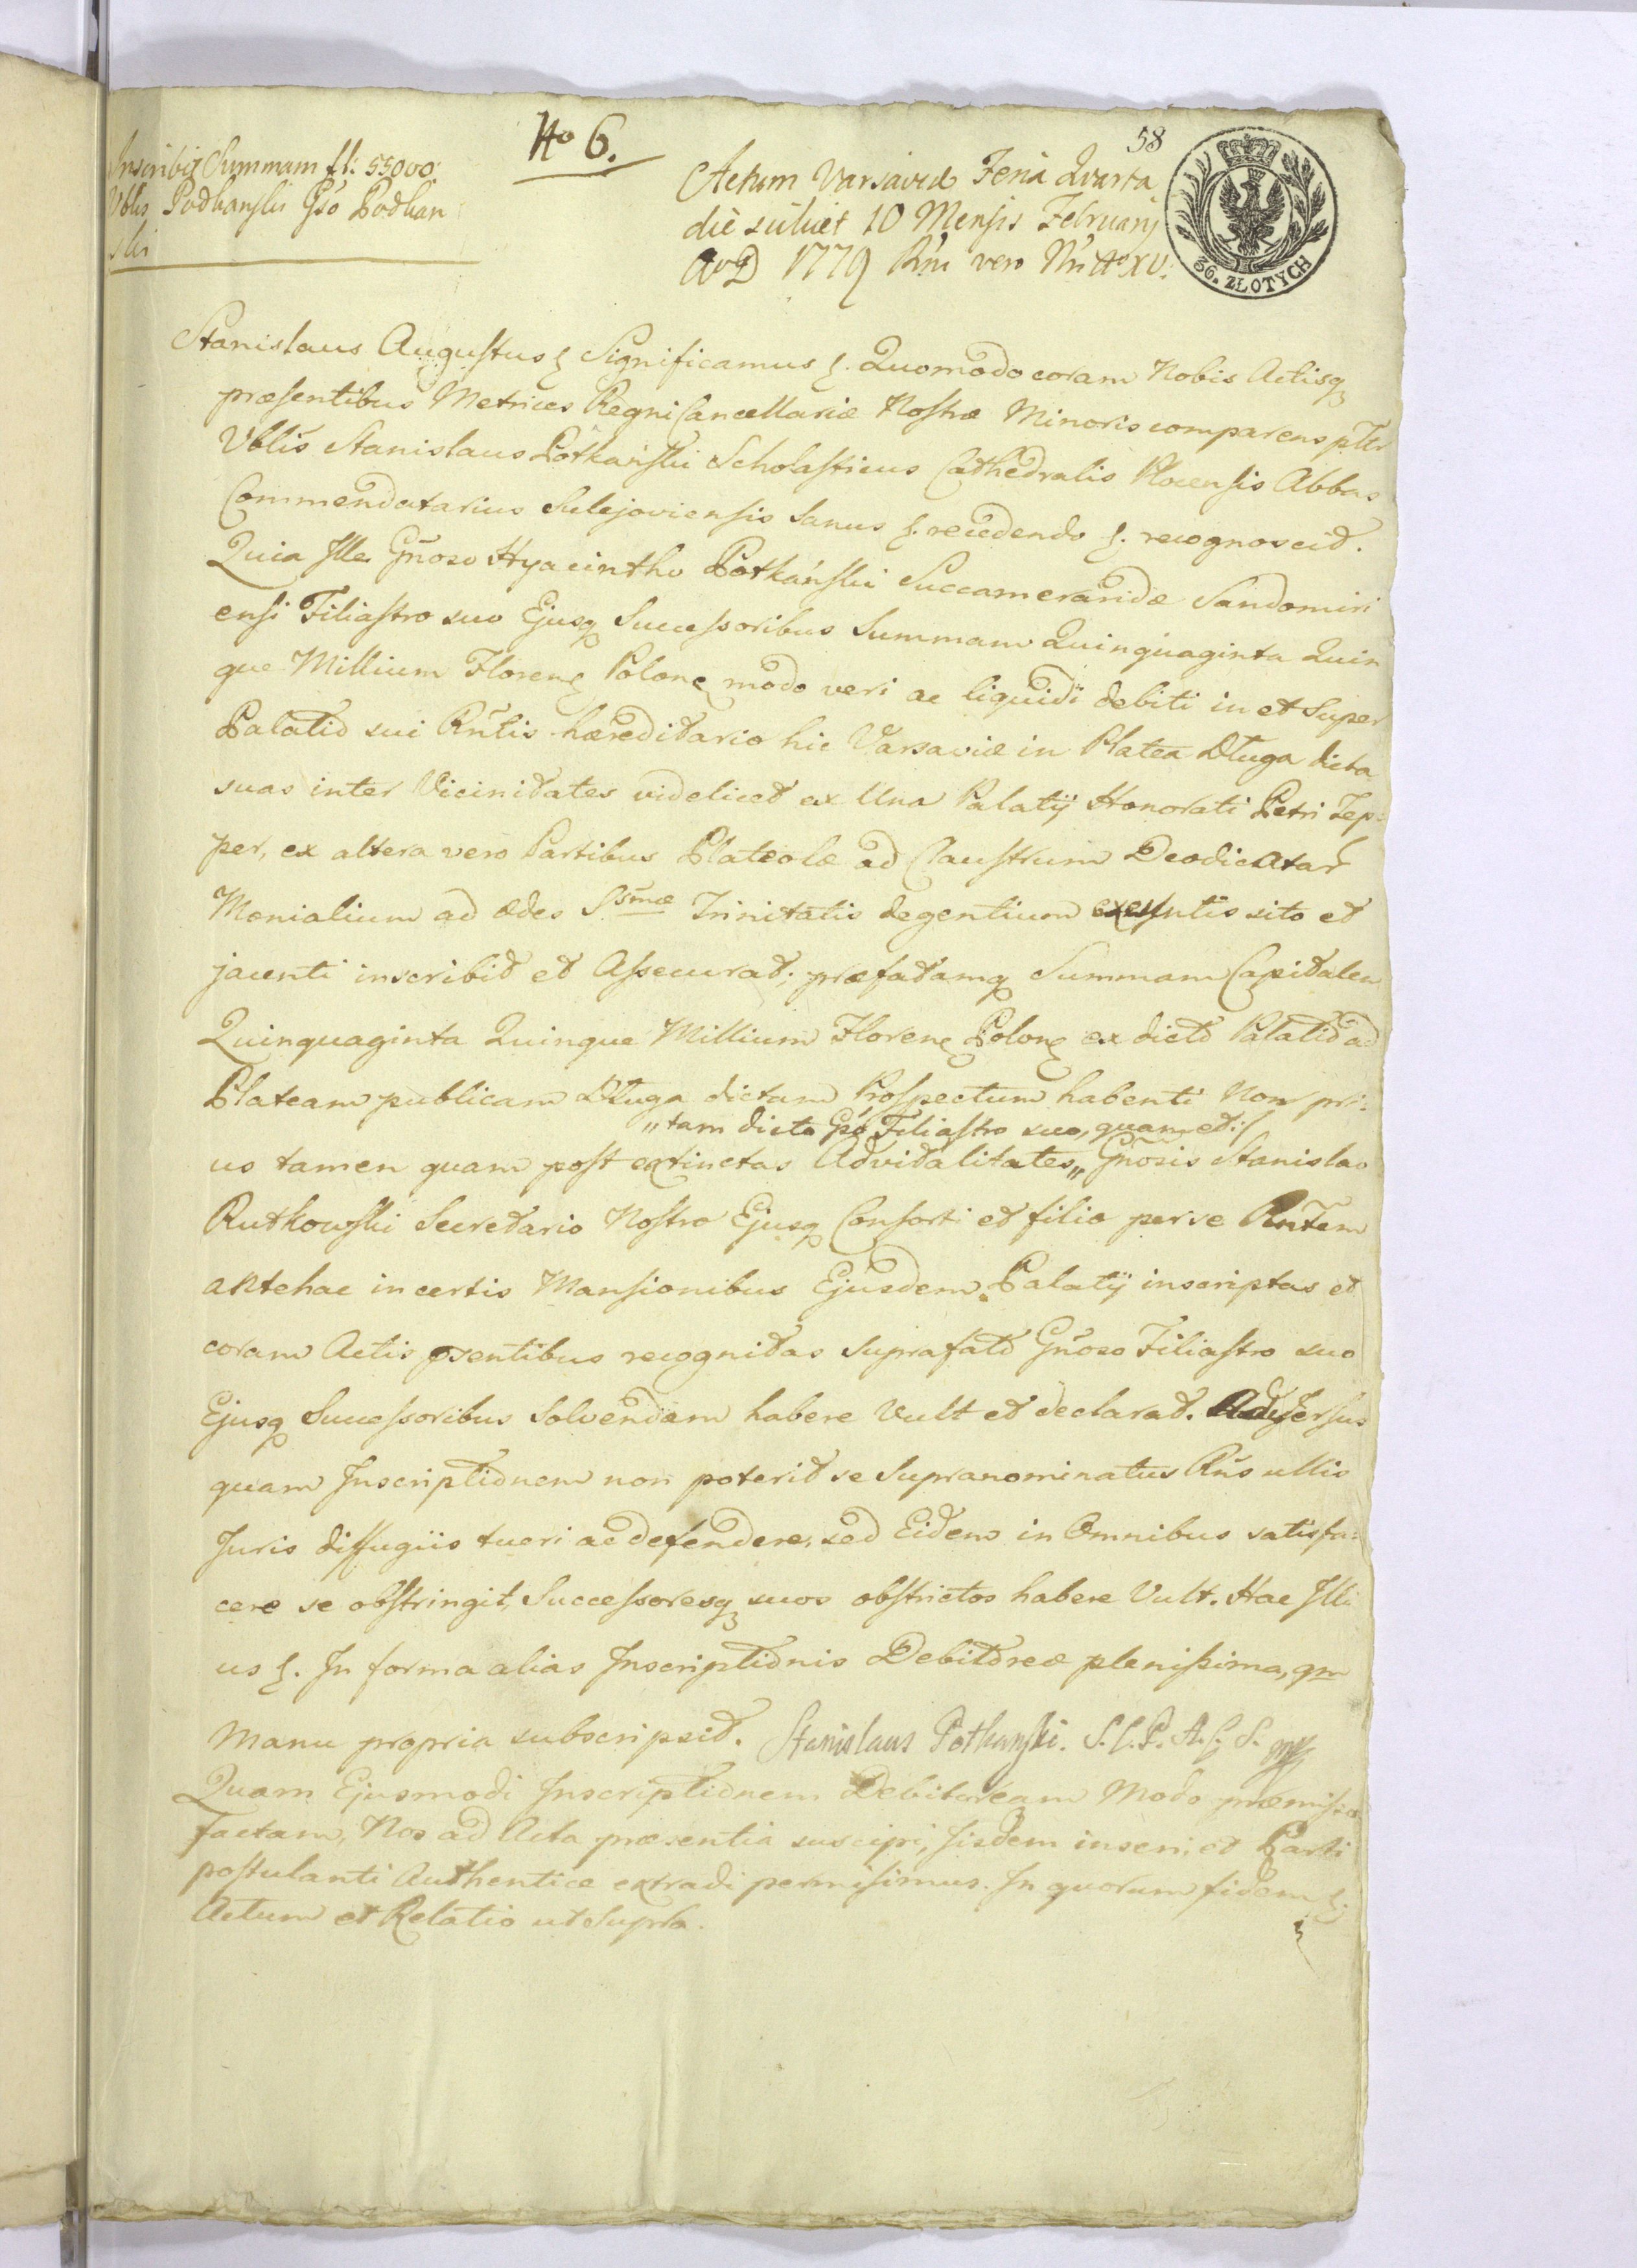 No 6.
58
Inscribit Summam fl: 55000.
Vblis Podkanski Gso Podkan
ski
Actum Varsaviæ Feria Quarta
die scilicet 10 Mensis Februarij
AoD 1779 Rni vero Nri Ao XV.
36. ZŁOTYCH
Stanislaus Augustus Significamus Quomodo coram Nobis Actisq
præsentibus Metrices Regni Cancellariæ Nostræ Minoris comparens plr
Vblis Stanislaus Potkański Scholasticus Cathedralis Plocensis Abbas
Commendatarius Sulejoviensis Sanus recedendo recognoscit.
Quia Ille Gñoso Hyacintho Potkański Succamerarida Sandomiri
ensi Filiastro suo Ejusq Successoribus Summam Quinquaginta Quin
que Millium Floren Polon modo veri ac liquidi debiti in et Super
Palatio sui Rñtis hæreditario hic Varsaviæ in Platea Długa dicta
suas inter Vicinitates videlicet ex Una Palatij Honorati Petri Tep:
per, ex altera vero Partibus Plateolæ ad Claustrum Deodicatar
Monialium ad ædes Ssmæ Trinitatis degentium exeuntis sito et
jacenti inscribit et Assecurat; præfatamq Summam Capitalem
Quinquaginta Quinque Millium Floren Polon ex dicto Palatio ad
Plateam publicam Długa dictam Prospectum habenti Non pri:
"tam dicto Gso Filiastro suo, quam et:/
us tamen quam post extinctas Advitalitates" Gñosis Stanislao
Rutkowski Secretario Nostro Ejusq Consorti et filiæ per se Rñtem
antehac in certis Mansionibus Ejusdem Palatij inscriptas et
coram Actis psentibus recognitas Suprafato Gñoso Filiastro suo
Ejusq Successoribus Solvendam habere Vult et declarat. Adversus
quam Inscriptionem non poterit se Supranominatus Rñs ullis
Juris diffugiis tueri ac defendere, sed Eidem in Omnibus satisfa:
cere se obstringit, Successoresq suos obstrictos habere Vult. Hac Illi
us In forma alias Inscriptionis Debitoreæ plenissima, qm
Manu propria subscripsit. Stanislaus Potkanski. S.C.P.A.C.S. mp
Quam Ejusmodi Inscriptionem Debitoream Modo præmisso
factam, Nos ad Acta præsentia suscipi, Iisdem inseri, et Parti
postulanti Authentice extradi permisimus. In quorum fidem
Actum et Relatio ut Supra.